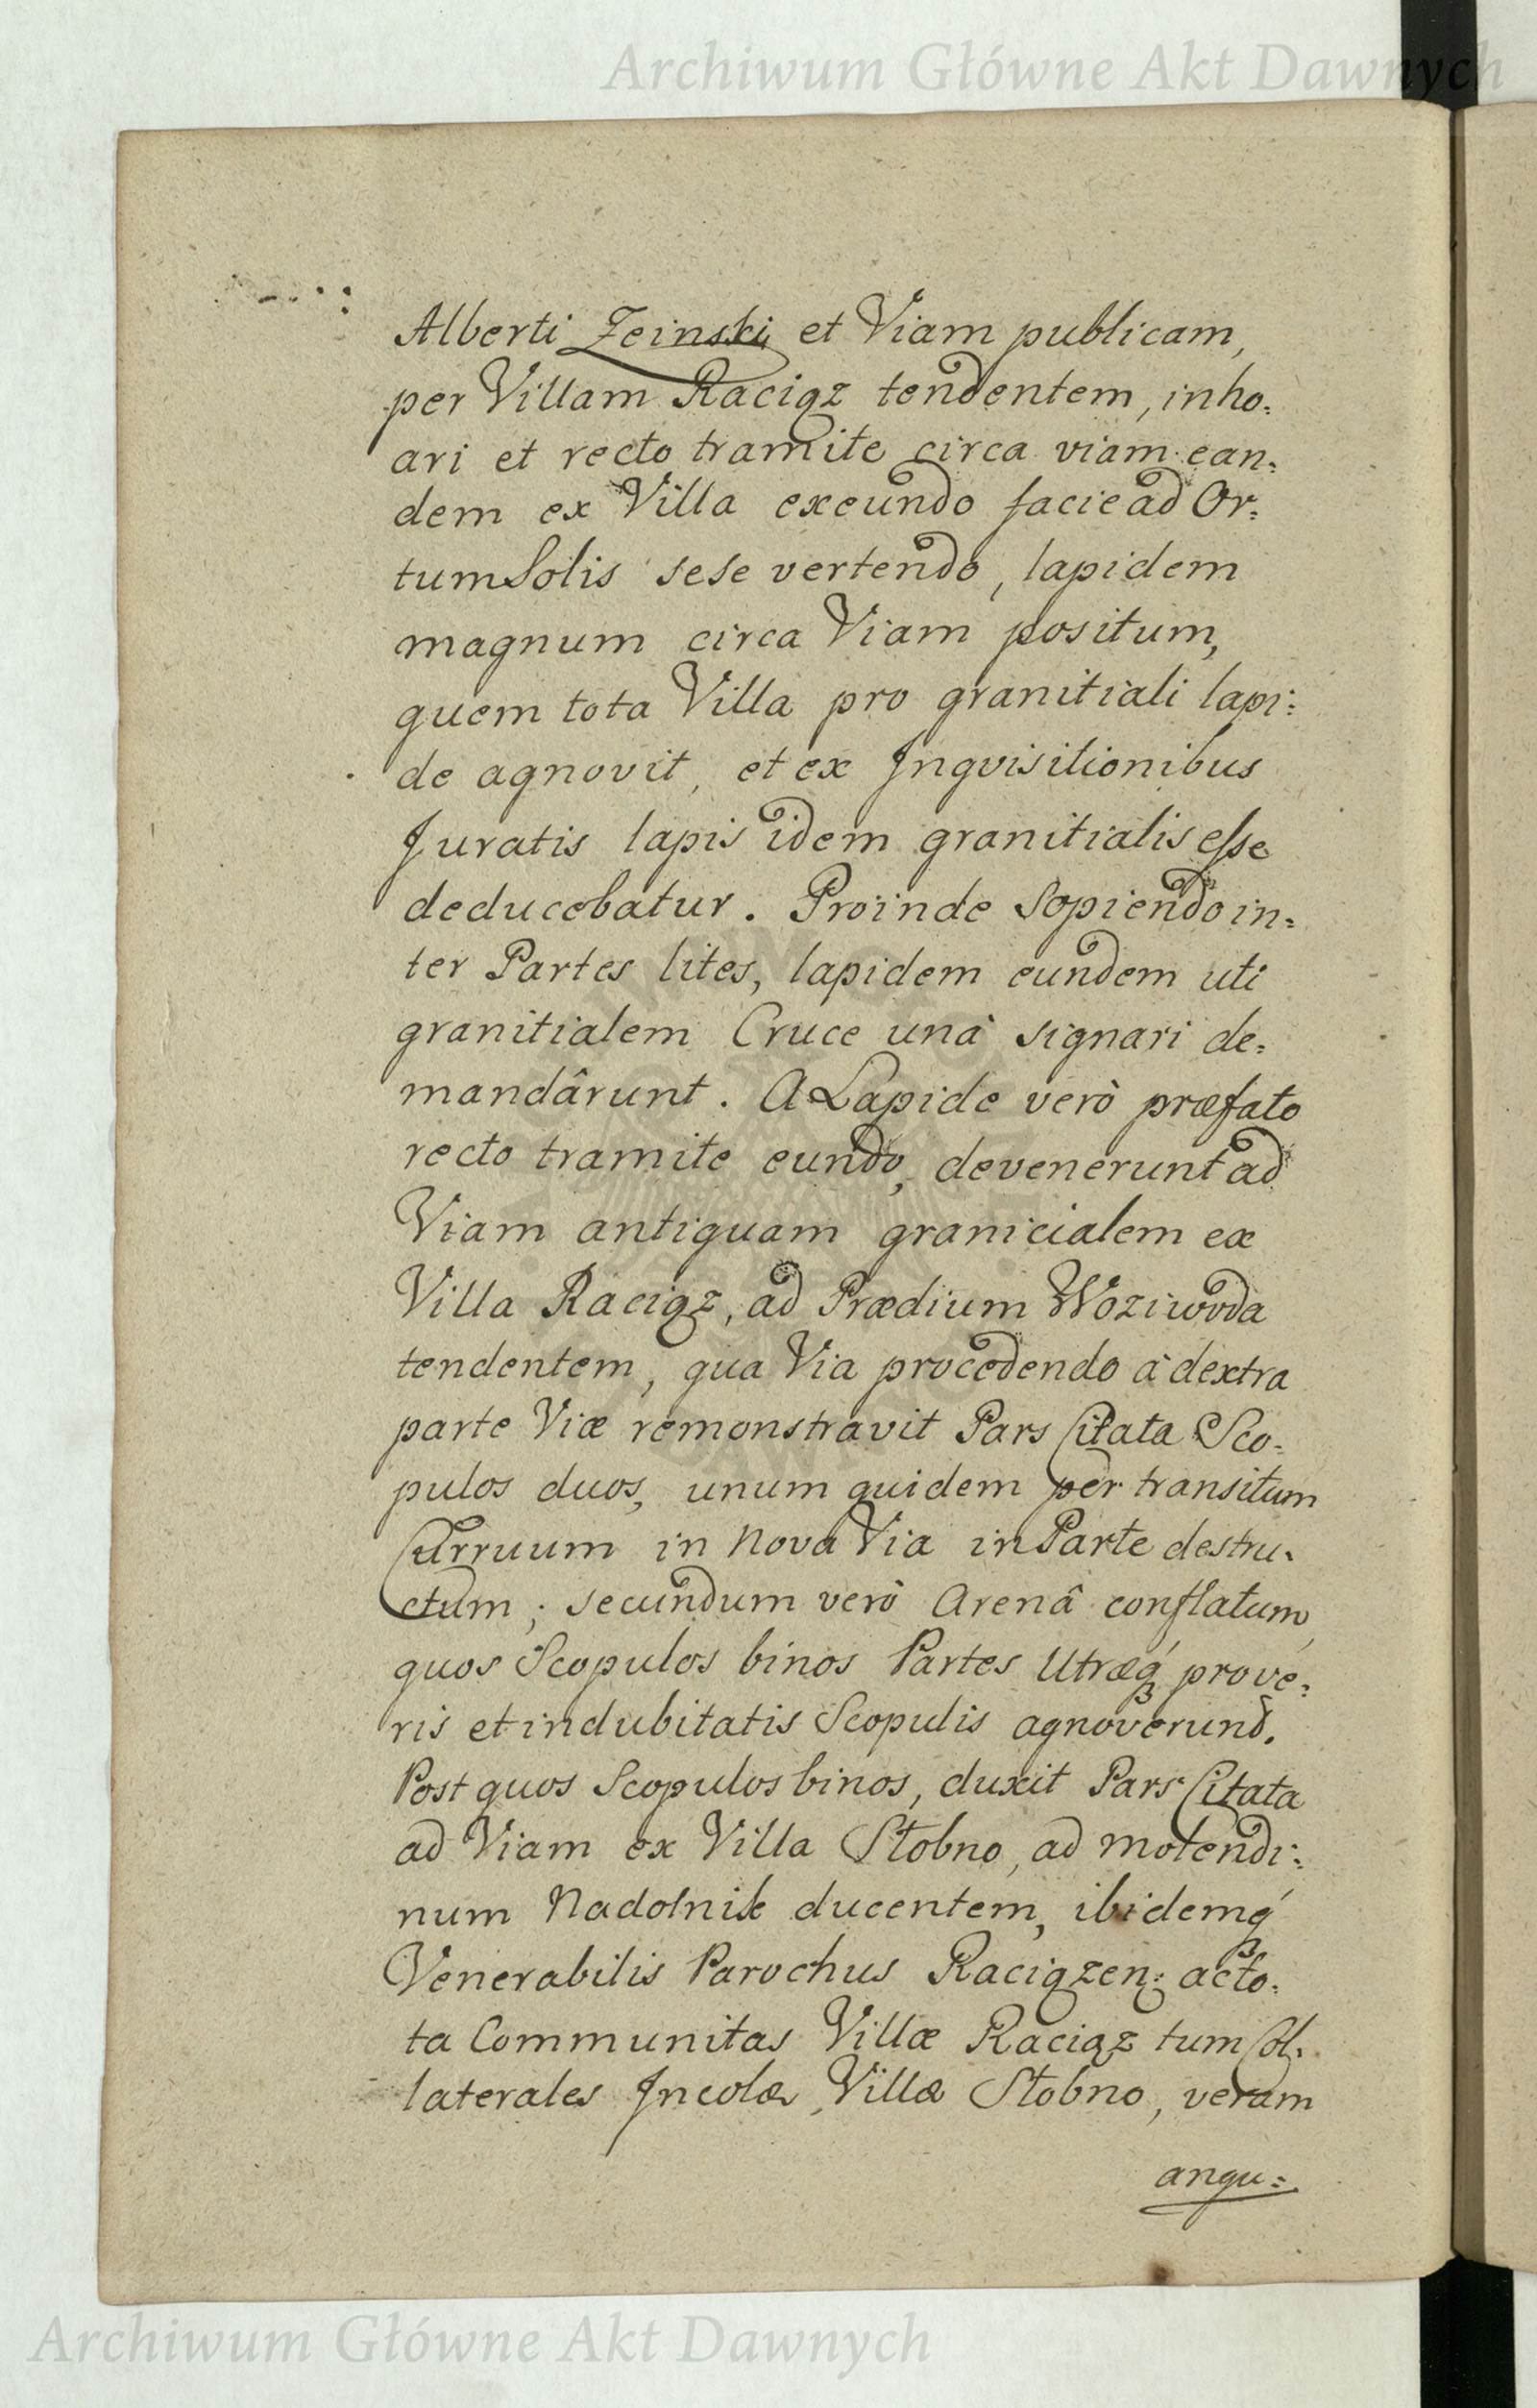 Archiwum Główne Akt Dawnych
Alberti Zeinski et Viam publicam,
per Villam Raciąz tendentem, inho=
ari et recto tramite circa viam ean=
dem ex Villa exeundo facie ad Or=
tum Solis sese vertendo, lapidem
magnum circa Viam positum,
quem tota Villa pro granitiali lapi=
de agnovit, et ex Inqvisitionibus
Juratis lapis idem granitialis esse
deducebatur. Proinde Sopiendo in=
ter Partes lites, lapidem eundem uti
granitialem Cruce unâ signari de=
mandârunt. A Lapide verò præfato
recto tramite eundo, devenerunt ad
Viam antiquam granicialem ex
Villa Raciąz, ad Prædium Woziwoda
tendentem, qua Via procedendo à dextra
parte Viæ remonstravit Pars Citata Sco=
pulos duos, unum quidem per transitum
Curruum in Nova Via in Parte destru=
ctum; secundum verò Arenâ conflatum,
quos Scopulos binos Partes Utræq; pro ve=
ris et indubitatis Scopulis agnoverund.
Post quos Scopulos binos, duxit Pars Citata
ad Viam ex Villa Stobno, ad Motendi=
num Nadolnik ducentem, ibidemq;
Venerabilis Parochus Raciązen: ac to=
ta Communitas Villæ Raciąz tum Col=
laterales Incolæ, Villæ Stobno, veram
angu=
Archiwum Główne Akt Dawnych